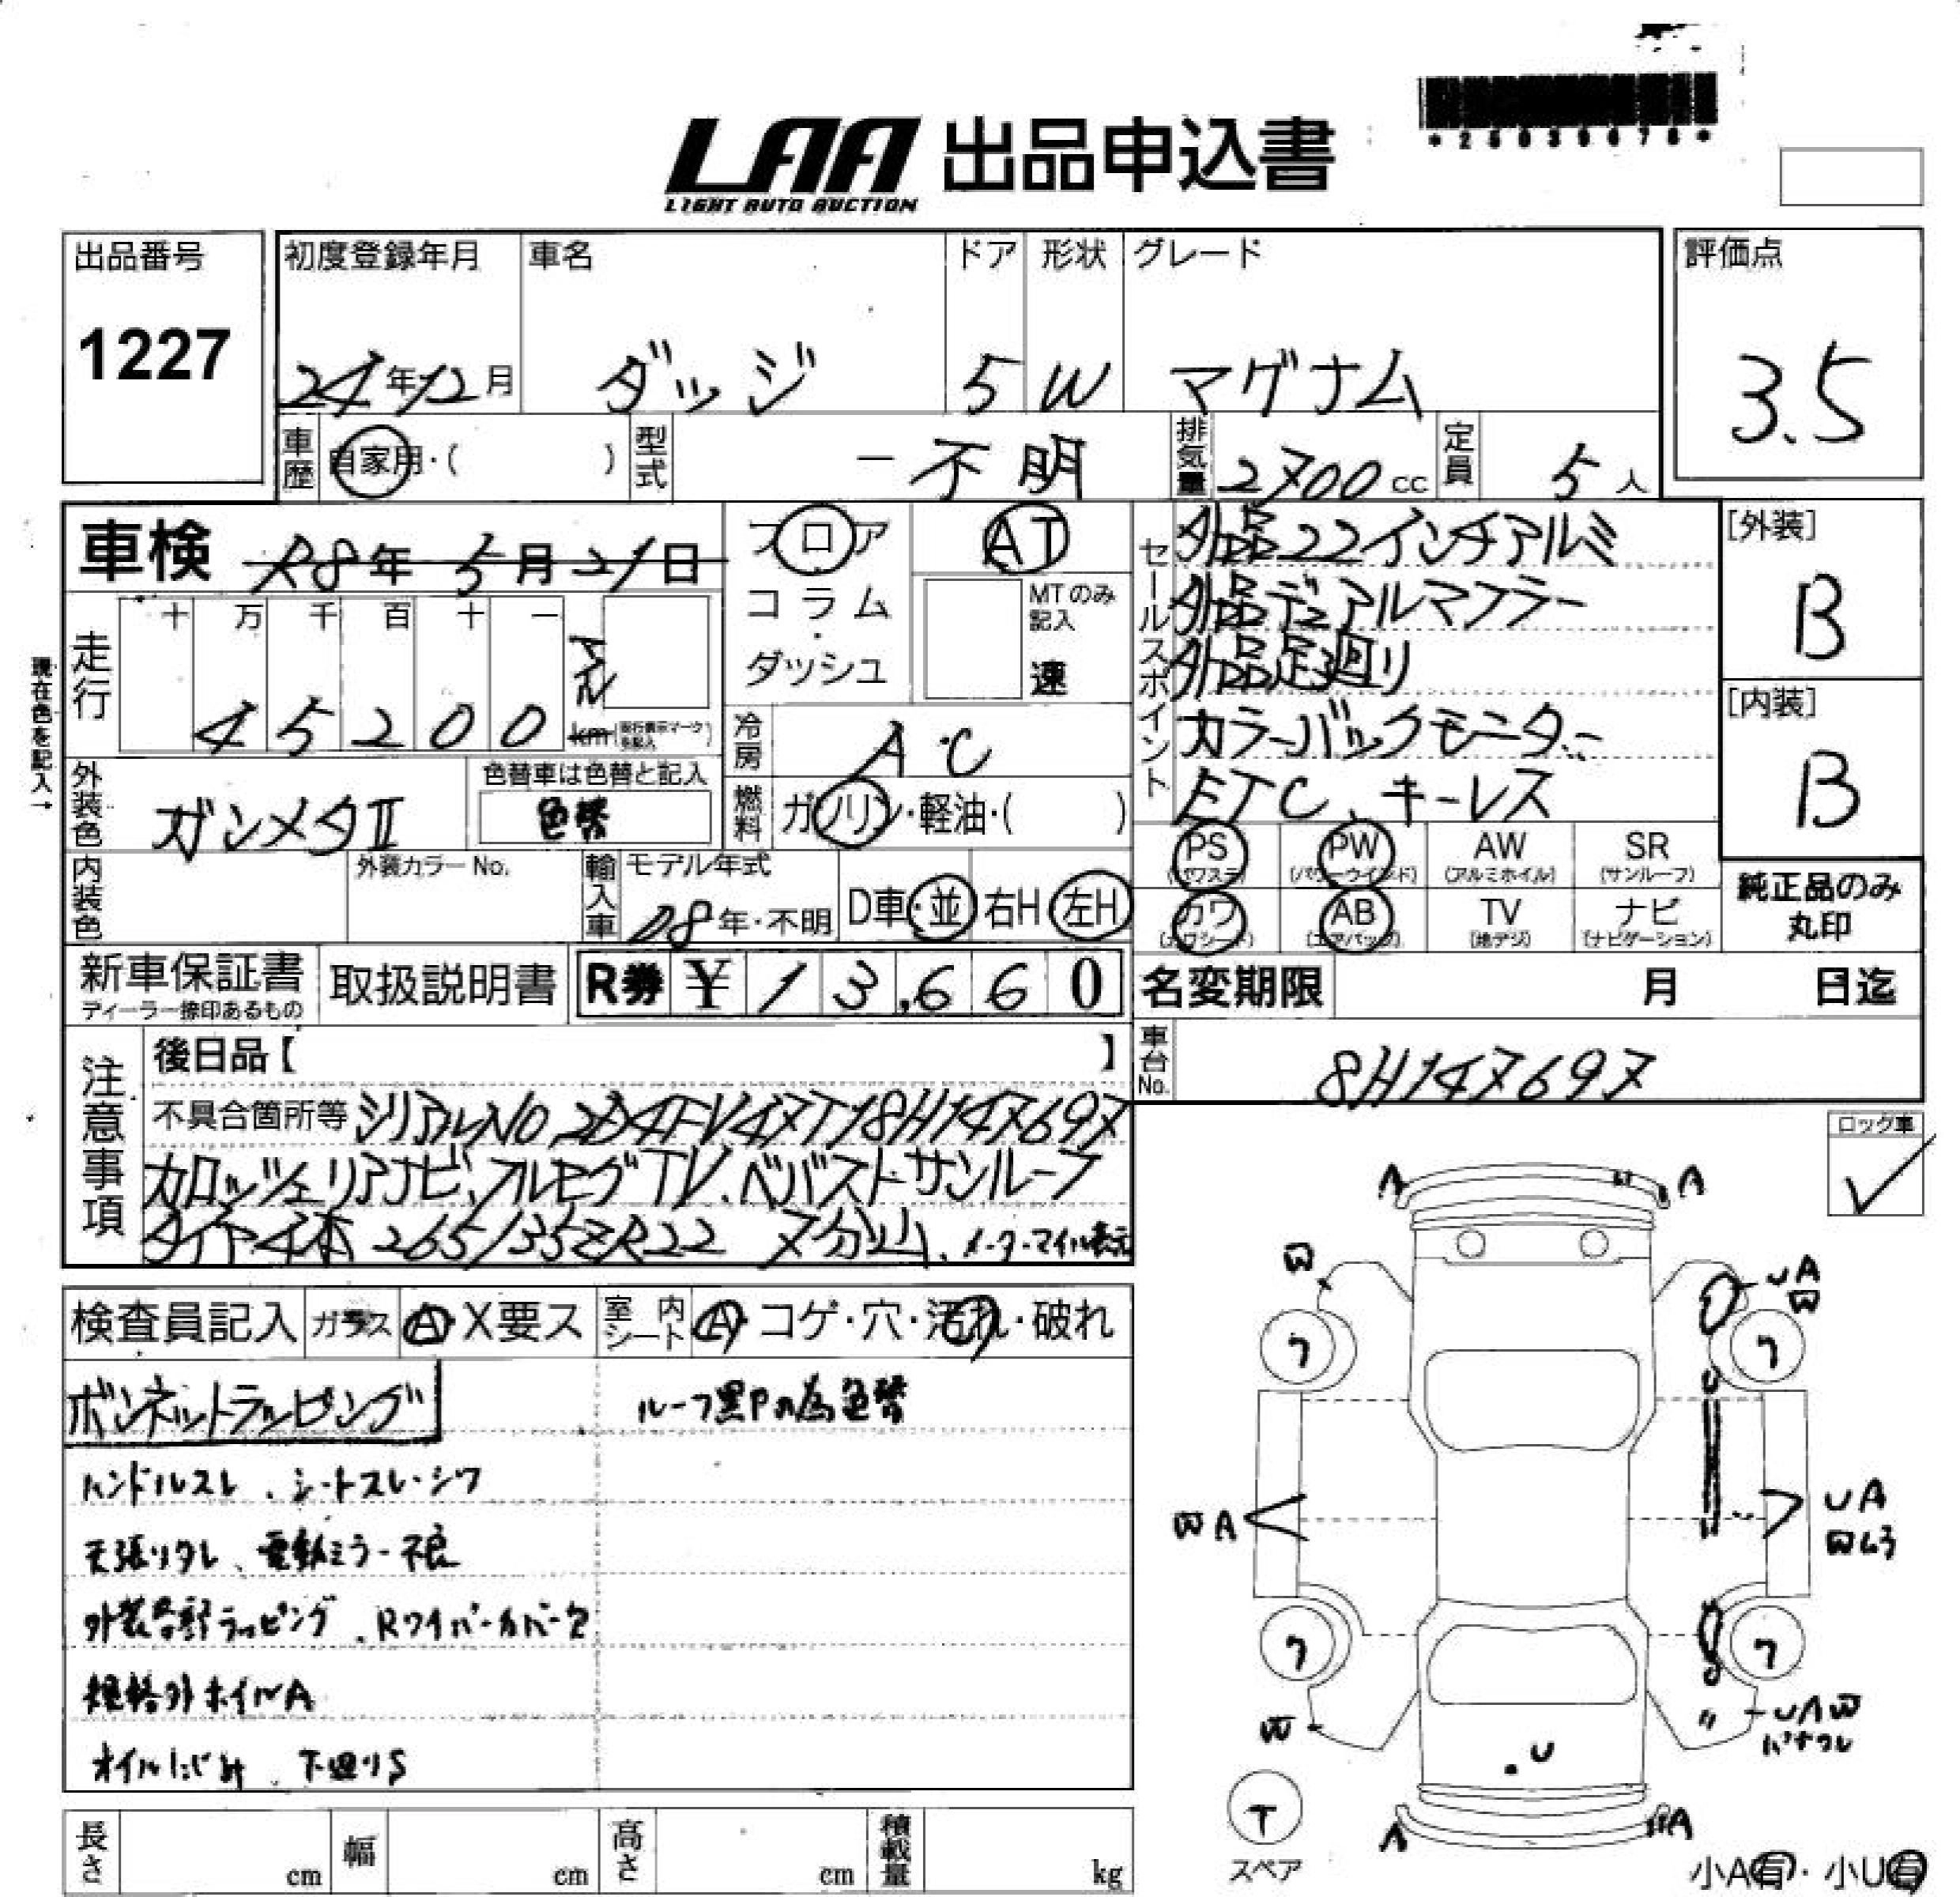 *25039678*
LAA 出品申込書
LIGHT AUTO AUCTION
出品番号
1227
初度登録年月
24年12月
車名
ダッジ
ドア
5
形状
W
グレード
マグナム
評価点
3.5
車歴
自家用・( )
型式
-不明
排気量
2700cc
定員
5人
車検 R8年5月21日
フロア
コラム
・
ダッシュ
AT
MTのみ記入
速
セールスポイント
外品22インチアルミ
外品デュアルマフラー
外品足廻り
カラーバックモニター
ETC、キーレス
[外装]
B
[内装]
B
現在色を記入→
走行
十 万 千 百 十 一
4 5 2 0 0
マイル
km(走行表示マークを記入)
冷房
A・C
燃料
ガソリン・軽油・( )
外装色
ガンメタII
色替車は色替と記入
色替
内装色
外装カラーNo.
輸入車
モデル年式
08年・不明
D車・並
右H 左H
PS
(パワステ)
PW
(パワーウインド)
AW
(アルミホイル)
SR
(サンルーフ)
カワ
(カワシート)
AB
(エアバッグ)
TV
(地デジ)
ナビ
(ナビゲーション)
純正品のみ
丸印
新車保証書
ディーラー捺印あるもの
取扱説明書
R券 ¥ 13,660
名変期限 月 日迄
車台No.
8H147697
注意事項
後日品【 】
不具合箇所等 シリアルNO 2D4FV47T18H147697
カロッツェリアナビ、フルセグTV、ベバストサンルーフ
タイヤ4本 265/35ZR22 7分山、メーターマイル表示
ロック車
検査員記入
ガラス A・X要ス
室内シート A・コゲ・穴・汚れ・破れ
ボンネットラッピング
ルーフ黒Pの為色替
ハンドルスレ、シートスレ・シワ
天張りタレ、電動ミラー不良
外装各部ラッピング、Rワイパーカバー欠
規格外ホイルA
オイルにじみ、下廻りS
A A
W
UA
W
ワ ワ
WA
UA
Wムラ
ワ ワ
W
UAW
ハナワレ
U
T
スペア
A A
小A有・小U有
長さ cm
幅 cm
高さ cm
積載量 kg